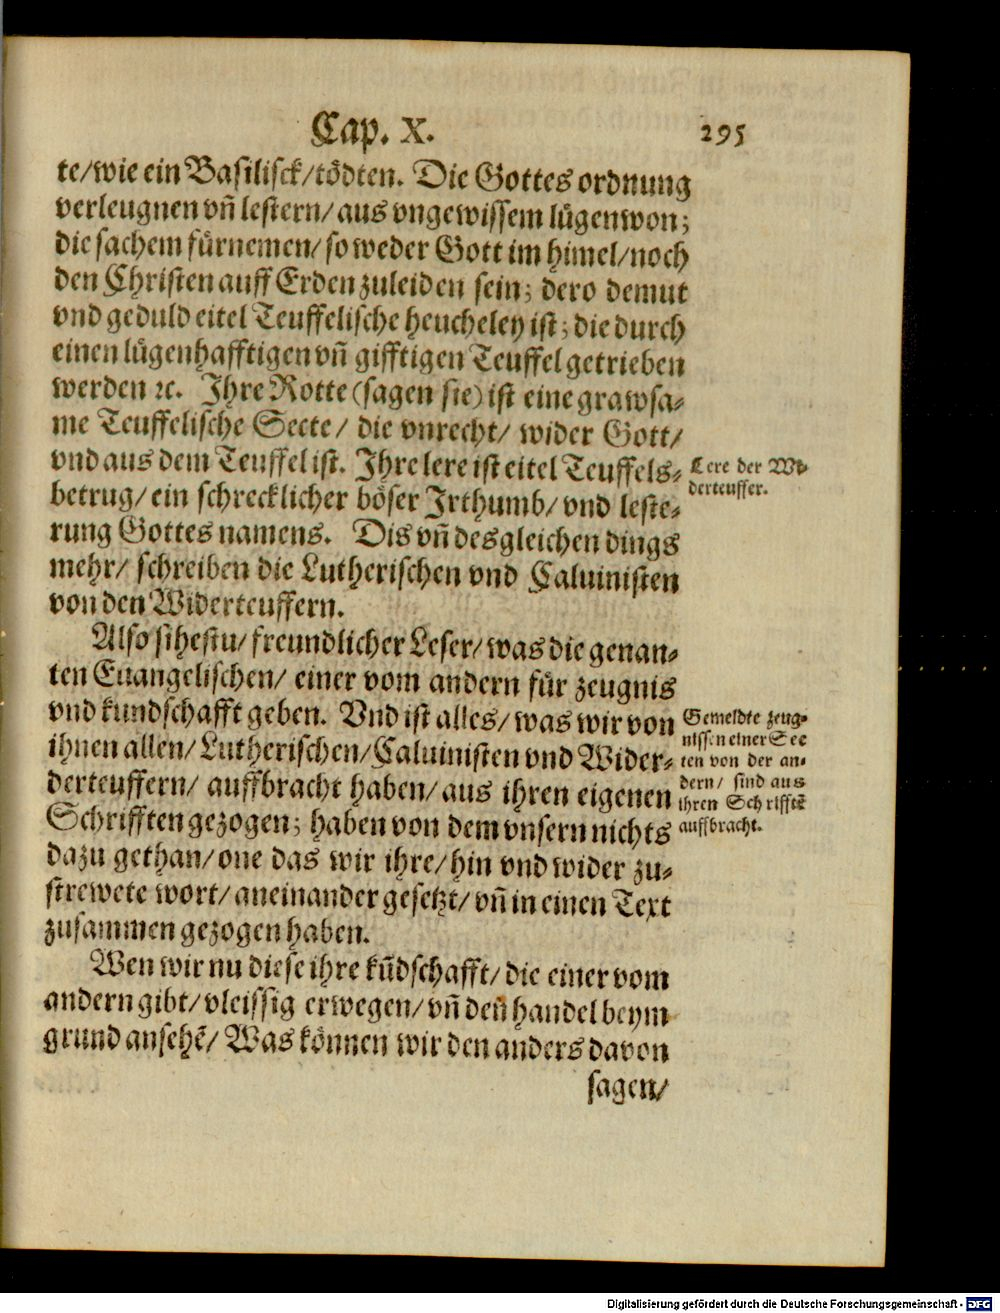 Cap. X. 295
te/wie ein Basilisck/tödten. Die Gottes ordnung
verleugnen vn̄ lestern/aus vngewissem lügenwon;
die sachem fürnemen/so weder Gott im himel/noch
den Christen auff Erden zuleiden sein; dero demut
vnd geduld eitel Teuffelische heucheley ist; die durch
einen lügenhafftigen vn̄ gifftigen Teuffel getrieben
werden ꝛc. Ihre Rotte (sagen sie) ist eine grawsa-
me Teuffelische Secte/ die vnrecht/ wider Gott/
vnd aus dem Teuffel ist. Ihre lere ist eitel Teuffels-
betrug/ ein schrecklicher böser Irthumb/ vnd leste-
rung Gottes namens. Dis vn̄ desgleichen dings
mehr/ schreiben die Lutherischen vnd Caluinisten
von den Widerteuffern.
Lere der Wi-
derteuffer.
Also sihestu/ freundlicher Leser/ was die genan-
ten Euangelischen/ einer vom andern für zeugnis
vnd kundschafft geben. Vnd ist alles/ was wir von
ihnen allen/ Lutherischen/ Caluinisten vnd Wider-
derteuffern/ auffbracht haben/ aus ihren eigenen
Schrifften gezogen; haben von dem vnsern nichts
dazu gethan/ one das wir ihre/ hin vnd wider zu-
strewete wort/ aneinander gesetzt/ vn̄ in einen Text
zusammen gezogen haben.
Gemeldte zeug-
nissen einer Sec
ten von der an-
dern/ sind aus
ihren Schrifftē
auffbracht.
Wen wir nu diese ihre kūdschafft/ die einer vom
andern gibt/ vleissig erwegen/ vn̄ den handel beym
grund ansehē/ Was können wir den anders davon
sagen/
Digitalisierung gefördert durch die Deutsche Forschungsgemeinschaft - DFG